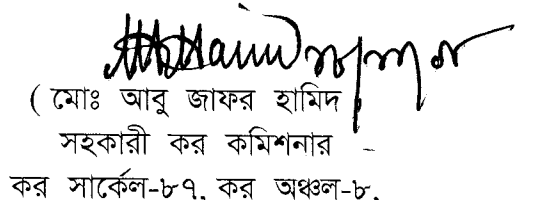 ( মোঃ আবু জাফর হামিদ
সহকারী কর কমিশনার
কর সার্কেল-৮৭, কর অঞ্চল-৮,